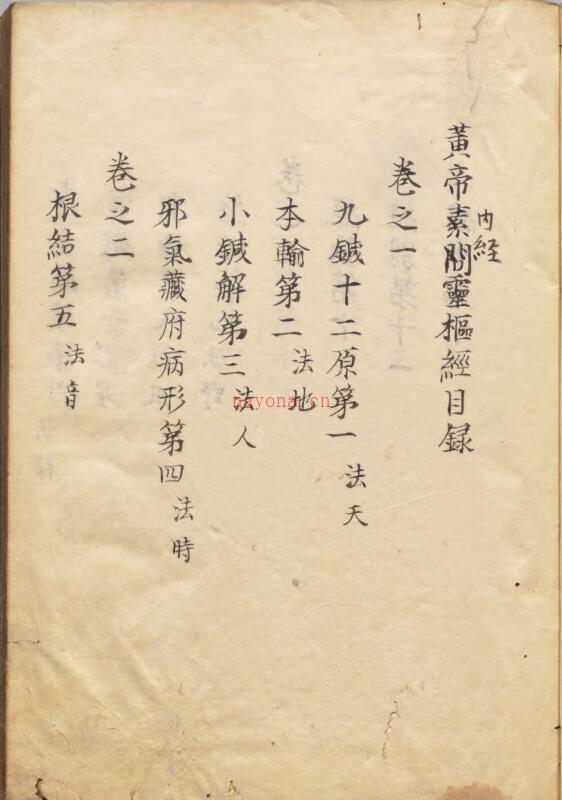 黃帝素問靈樞經目録
内経
卷之一
九鍼十二原第一 法天
本輸第二 法地
小鍼解第三 法人
邪氣藏府病形第四 法時
卷之二
根結第五 法音
nayona.cn